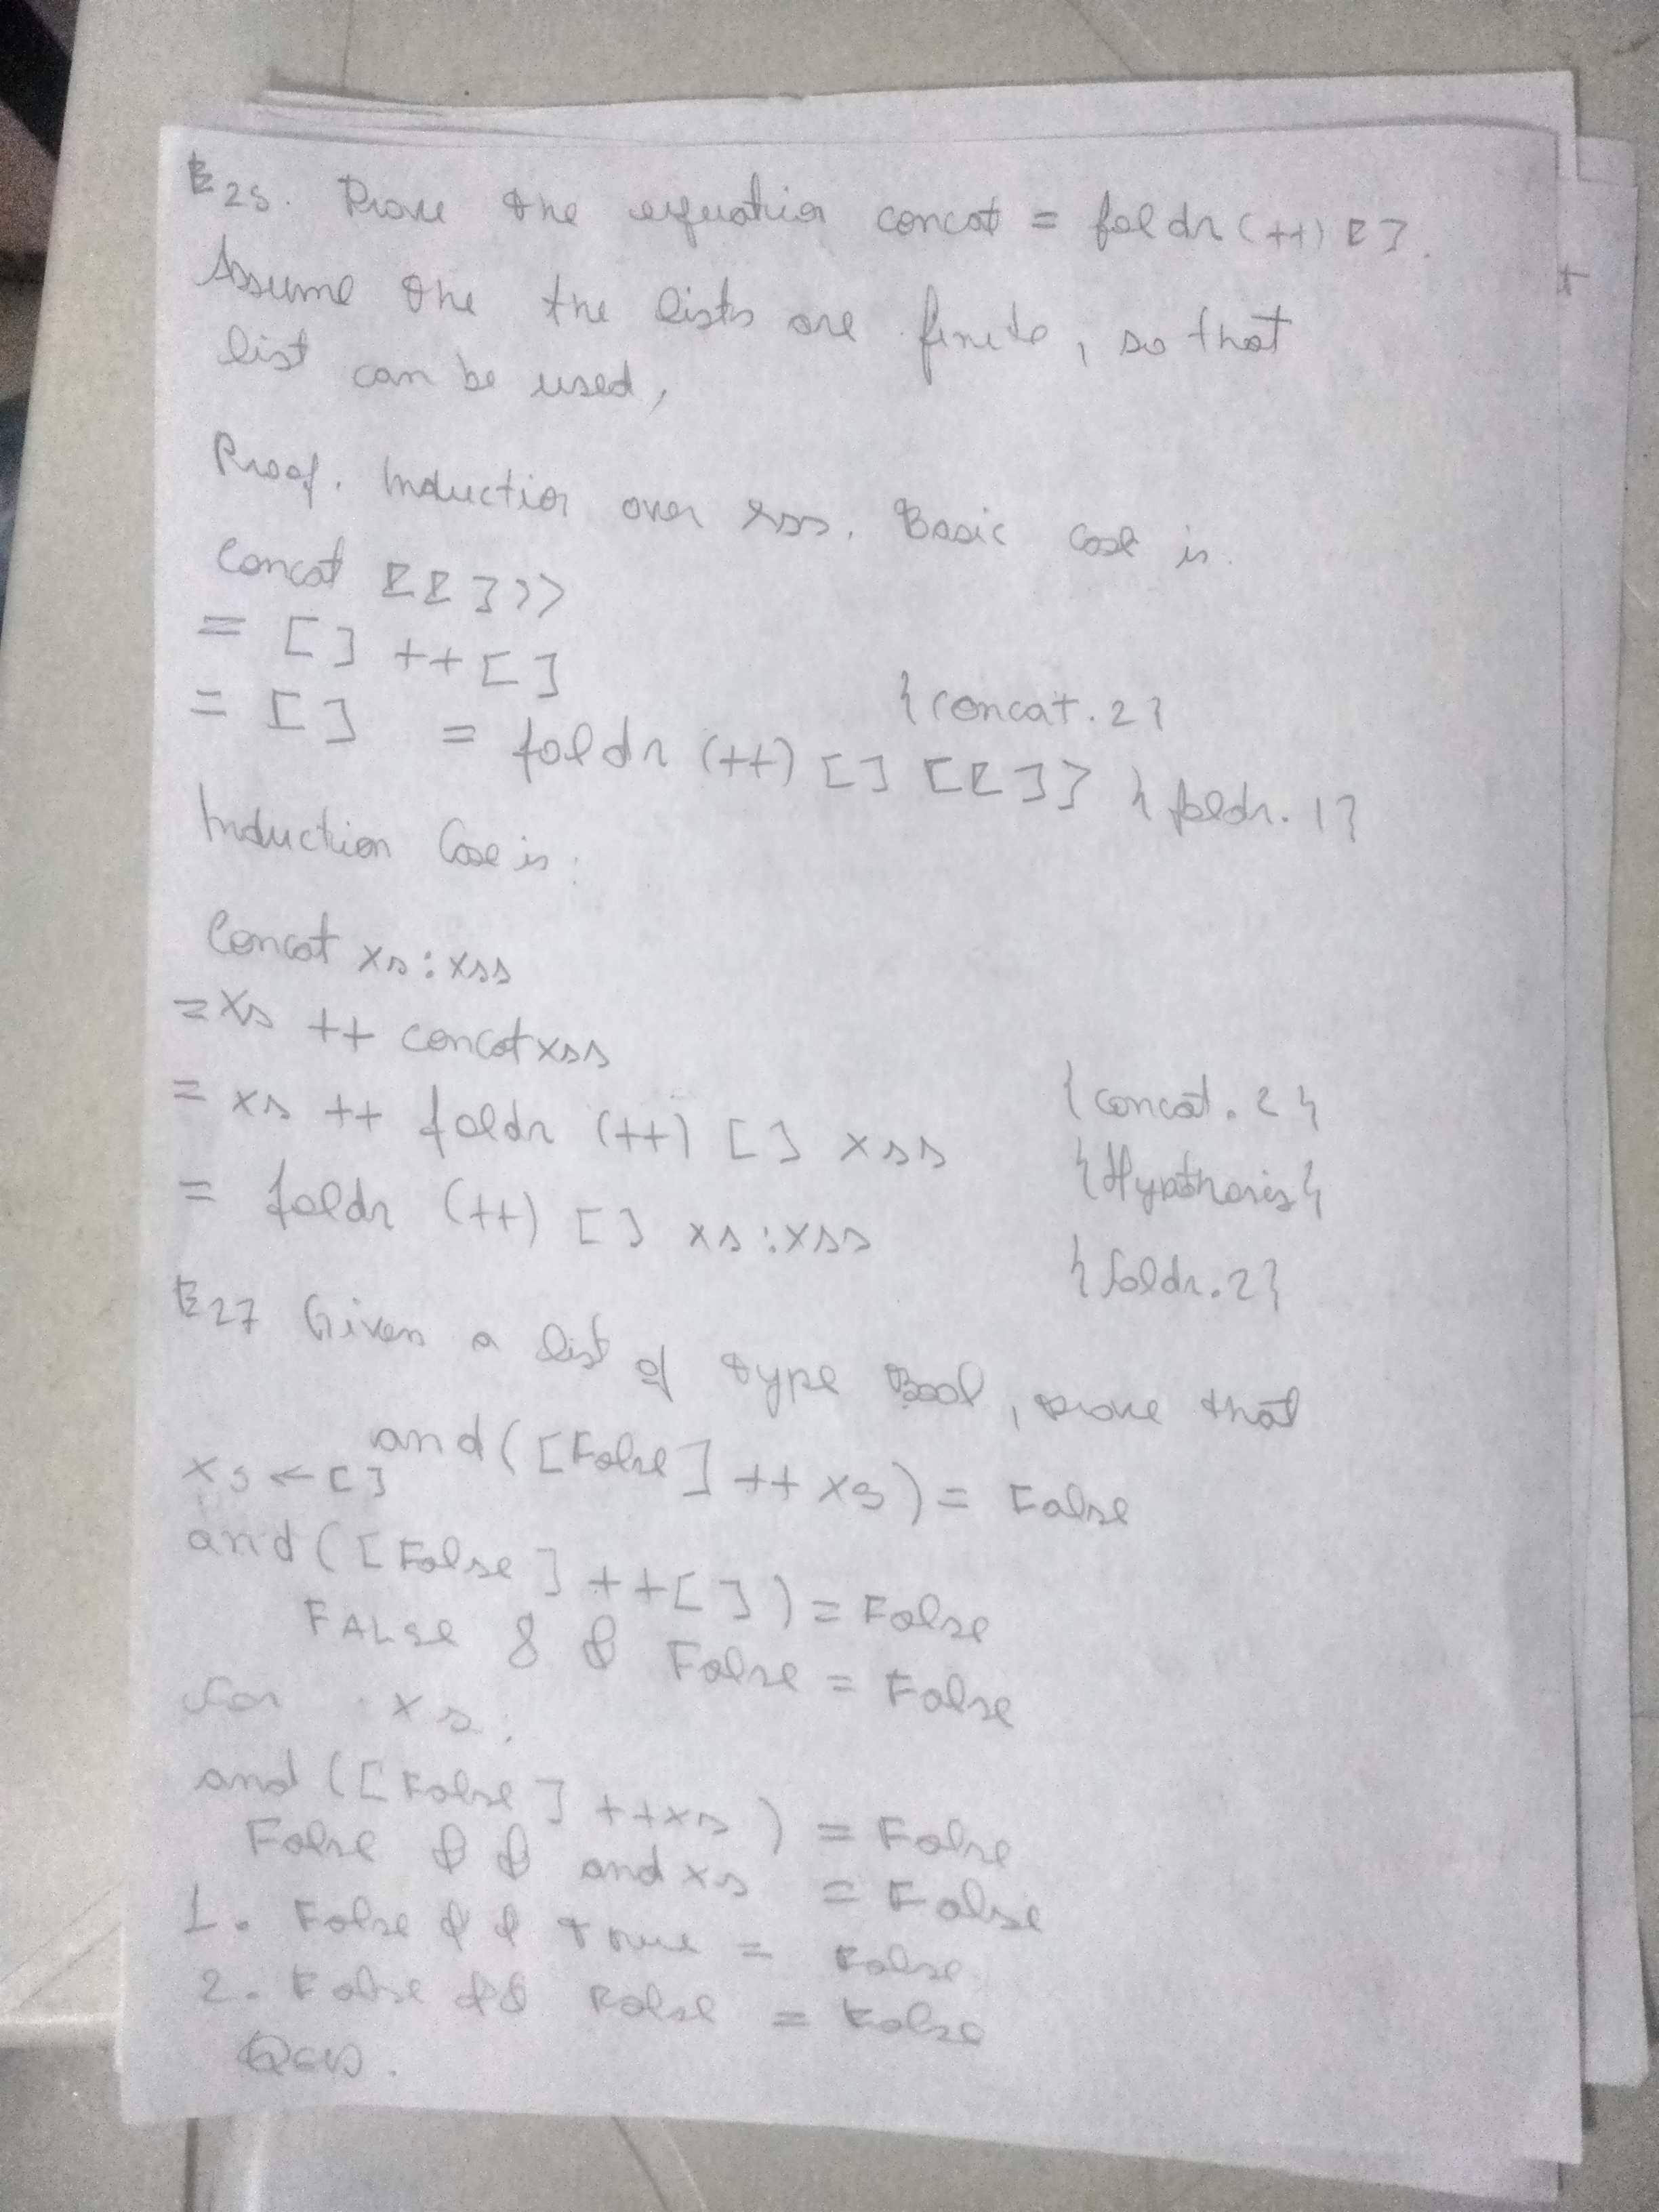 E25. Prove the equation concat = foldr (++) [].
Assume the the lists are finite, so that
list can be used,
Proof. Induction over xss. Basic case is.
Concat [[]]
= [] ++ []
= [] = foldr (++) [] [[]] {concat.2} {foldr.1}
Induction Case is:
Concat xs:xss
= xs ++ concat xss
= xs ++ foldr (++) [] xss {concat.2}
= foldr (++) [] xs:xss {Hypothesis}
{foldr.2}
E27 Given a list of type Bool, prove that
and ([False] ++ xs) = False
xs ← []
and ([False] ++ []) = False
FALse && False = False
for xs:
and ([False] ++ xs) = False
False && and xs = False
1. False && true = False
2. False && False = False